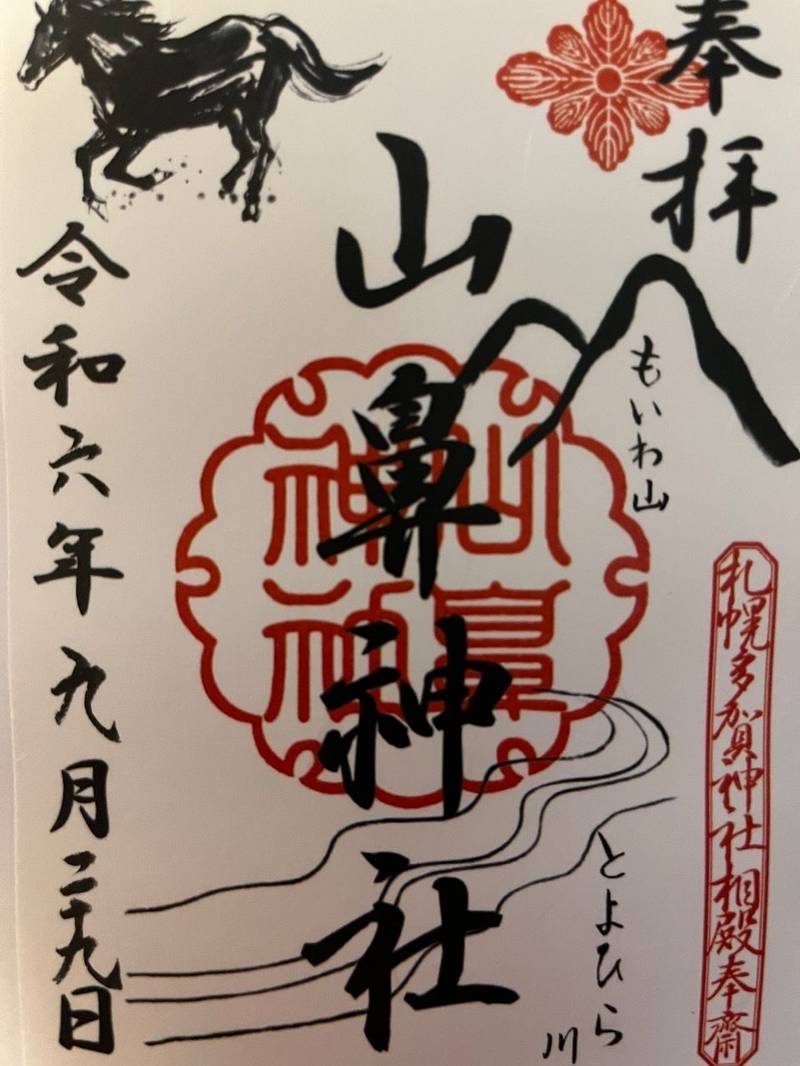 奉拝
もいわ山
札幌多賀神社相殿奉齋
山鼻神社
山鼻神社
とよひら川
令和六年九月二十九日